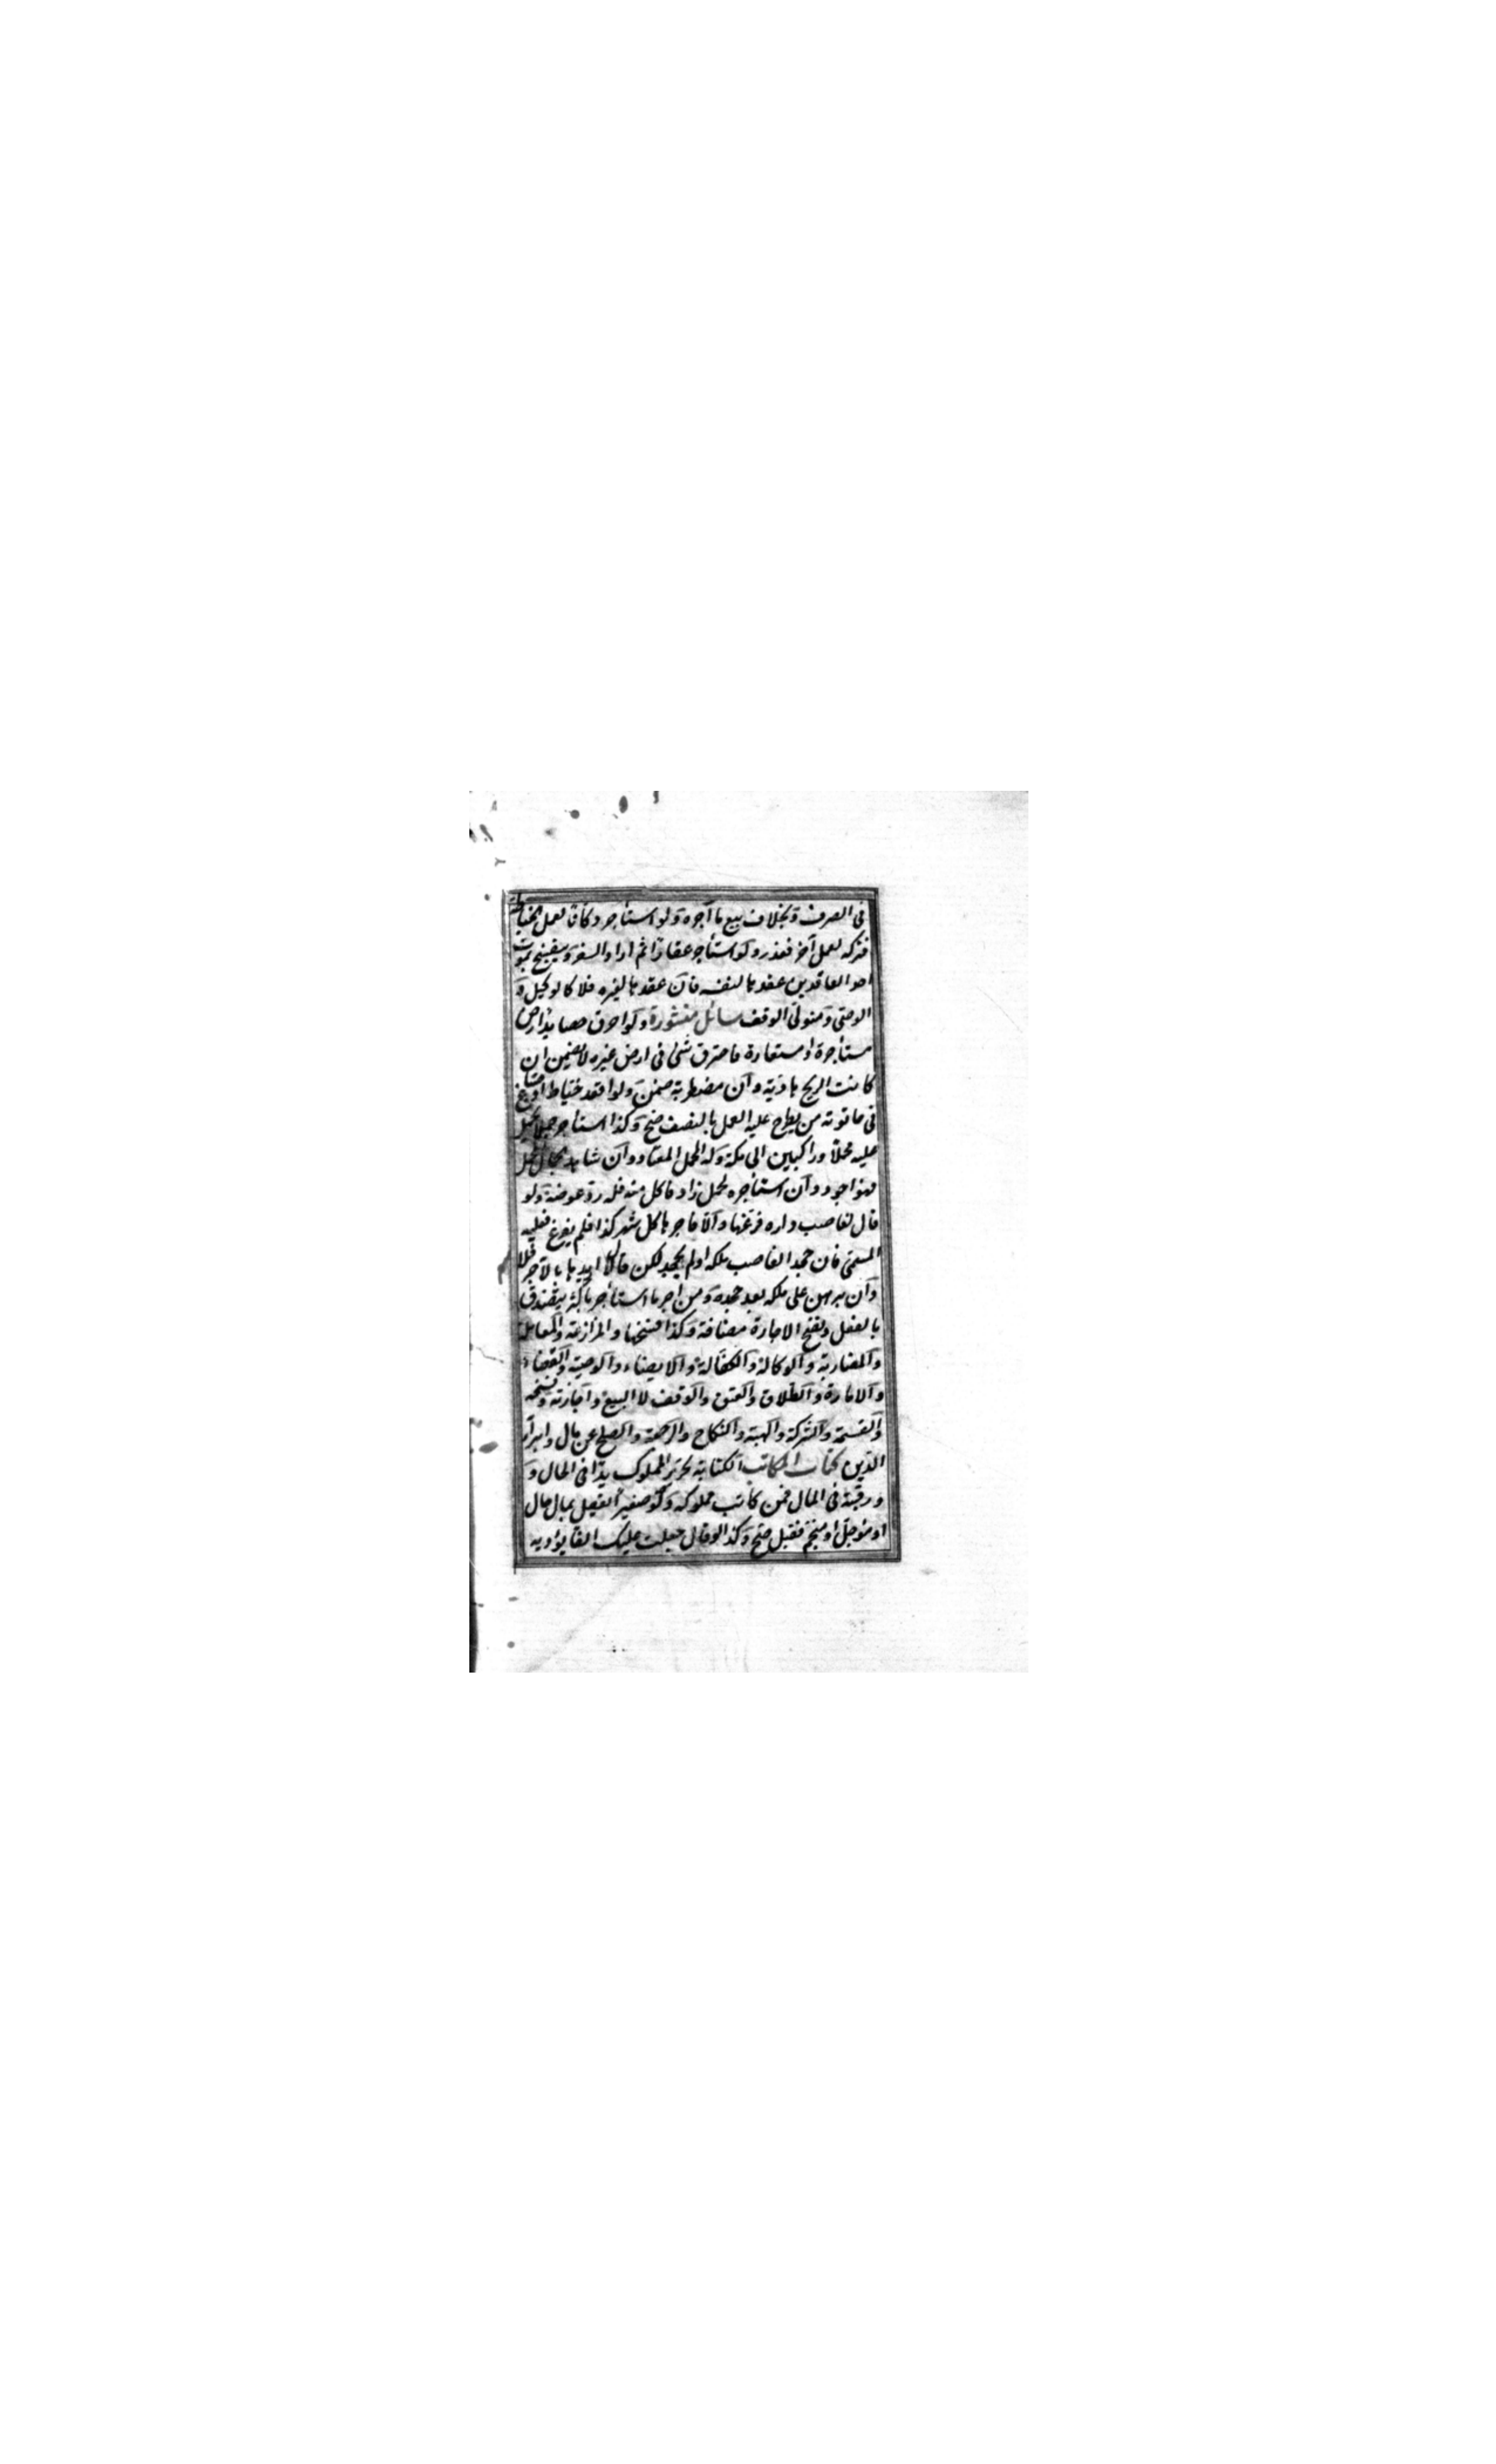 في الصرف وبخلاف بيع ما آجره ولو استأجر دكانا لعمل الخياطة
فتركه لعمل آخر فعذر ولو استأجر عقارا ثم اراد السفر وينفسخ بموت
احد العاقدين عقدها لنفسه فان عقدها لغيره فلا كالوكيل و
الوصي ومتولي الوقف مسائل منثورة ولو احرق حصايد ارض
مستأجرة او مستعارة فاحترق شئ في ارض غيره لا يضمن ان
كانت الريح هادية وان مضطربة ضمن ولو اقعد خياط او صباغ
في حانوته من يطرح عليه العمل بالنصف صح وكذا استأجر جملا ليحمل
عليه محملا وراكبين الى مكة وله المحمل المعتاد وان شاهد الجمال المحمل
فهو اجود وان استأجره لحمل زاد فاكل منه فله رد عوضه ولو
قال لغاصب داره فرغها والا فاجرها كل شهر كذا فلم يفرغ فعليه
المسمى فان جحد الغاصب ملكه او لم يجحد لكن قال لا اريدها بالاجر فلا
وان برهن على ملكه بعد جحده ومن اجر ما استأجر باكثر يتصدق
بالفضل وتصح الاجارة مضافة وكذا فسخها والمزارعة والمعاملة
والمضاربة والوكالة والكفالة والايصاء والوصية والقضاء
والامارة والطلاق والعتق والوقف لا البيع واجازته وفسخه
والقسمة والشركة والهبة والنكاح والرجعة والصلح عن مال وابراء
الدين كتاب المكاتب الكتابة تحرير المملوك يدا في الحال و
ورقبة في المال فمن كاتب مملوكه ولو صغيرا يعقل بمال حال
او مؤجل او منجم فقبل صح وكذا لو قال جعلت عليك الفا يؤديه